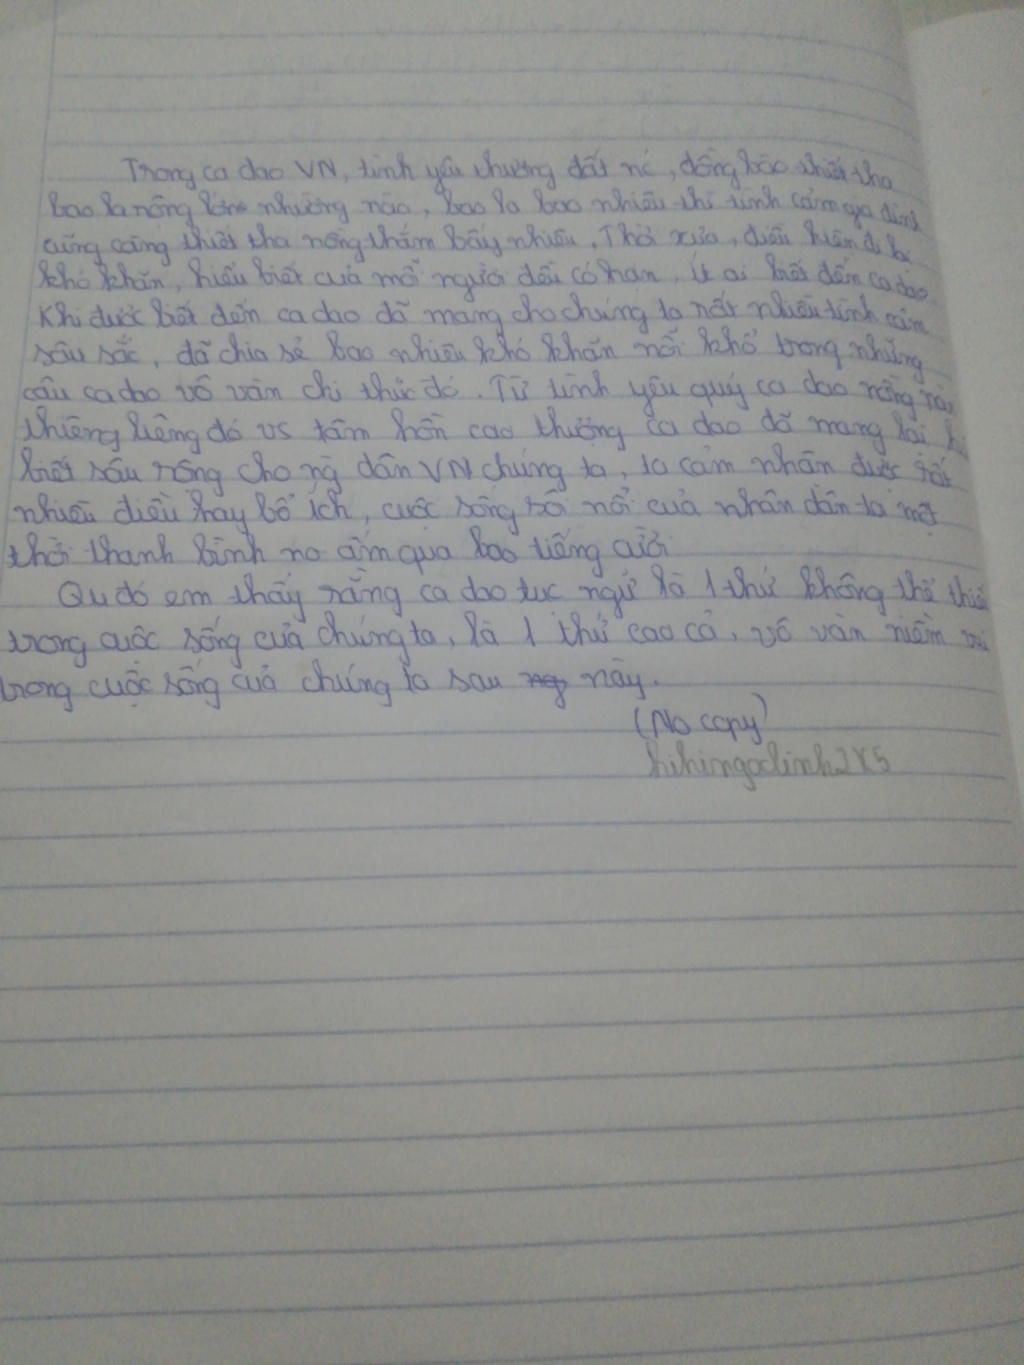 Trong ca dao VN, tình yêu thương đất nc, đồng bào thiết tha
bao la rộng lớn nhường nào, bao la bao nhiêu thì tình cảm gia đình
cũng càng thiết tha nồng thắm bấy nhiêu. Thời xưa, điều kiện đi lại
khó khăn, hiểu biết của mỗi người đều có hạn, ít ai biết đến ca dao.
Khi được biết đến ca dao đã mang cho chúng ta rất nhiều tình cảm
sâu sắc, đã chia sẻ bao nhiêu khó khăn nỗi khổ trong những
câu ca dao vô vàn chi thức đó. Từ tình yêu quý ca dao nồng nàn
thiêng liêng đó vs tâm hồn cao thượng ca dao đã mang lại
biết sâu rộng cho ng dân VN chúng ta, ta cảm nhận được rất
nhiều điều hay bổ ích, cuộc sống sôi nổi của nhân dân ta một
thời thanh bình no ấm qua bao tiếng cười
Qu đó em thấy rằng ca dao tục ngữ là 1 thứ không thể thiếu
trong cuộc sống của chúng ta, là 1 thứ cao cả, vô vàn niềm vui
trong cuộc sống của chúng ta sau này.
(No copy)
hihingoclinh2K5